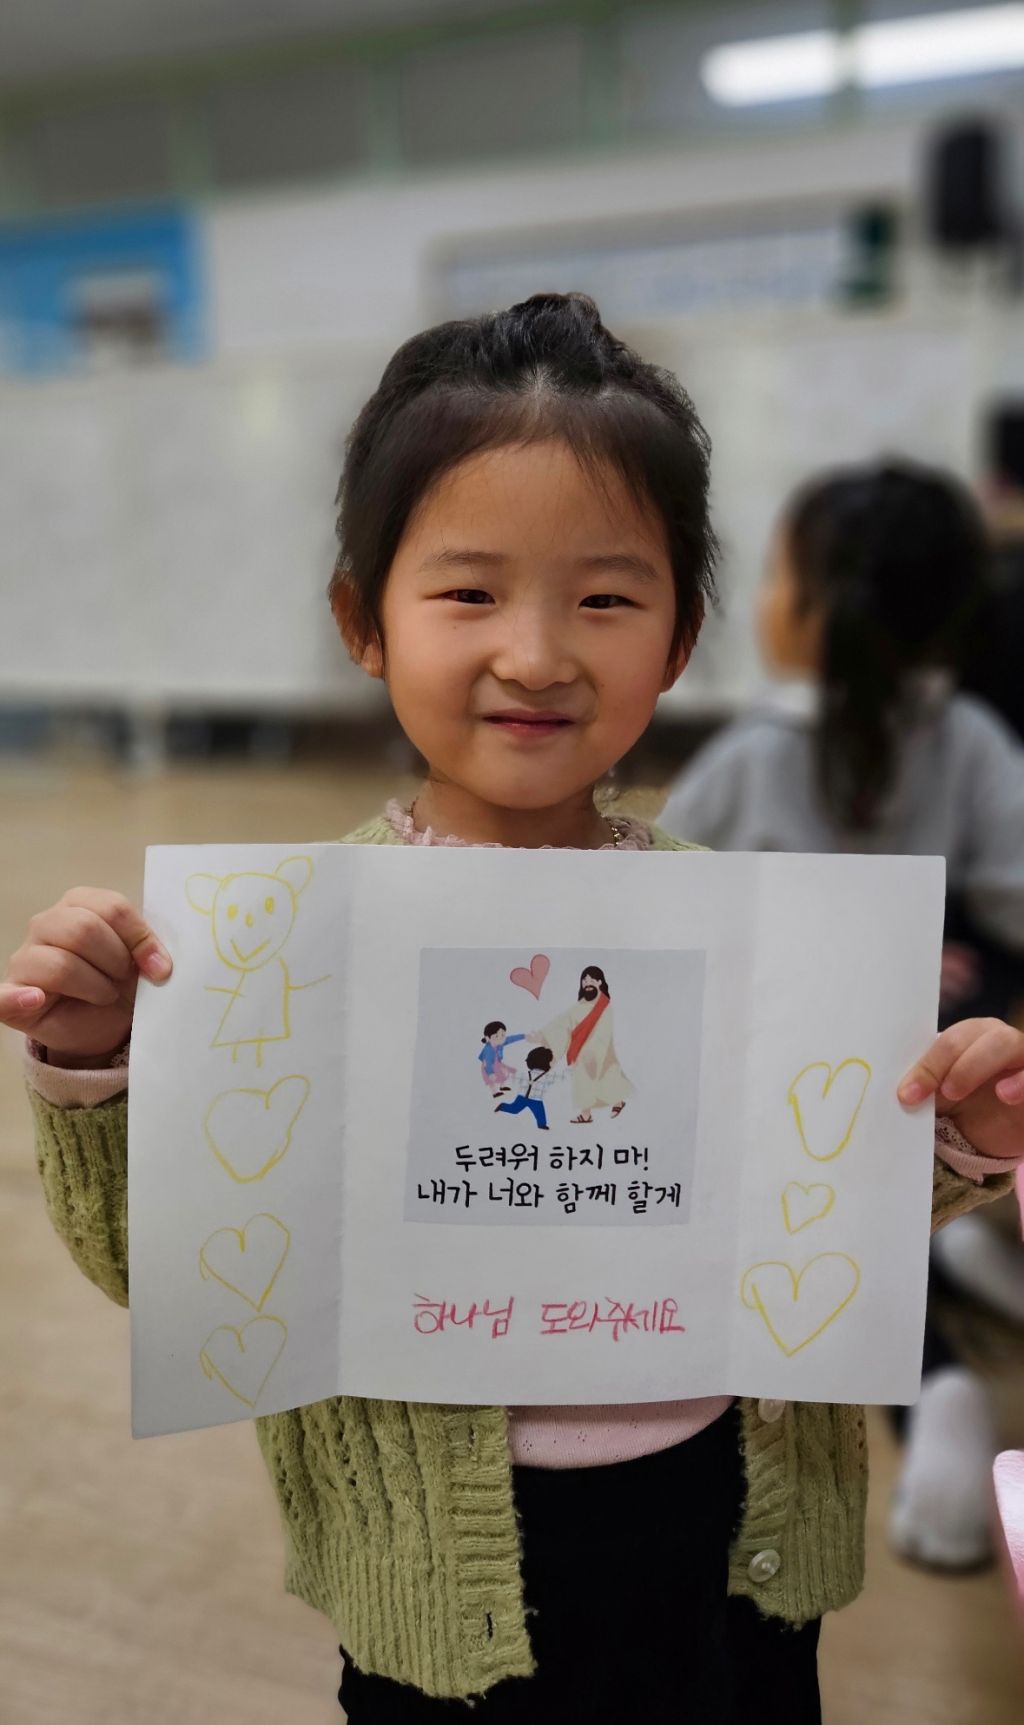 두려워 하지 마!
내가 너와 함께 할게
하나님 도와주세요